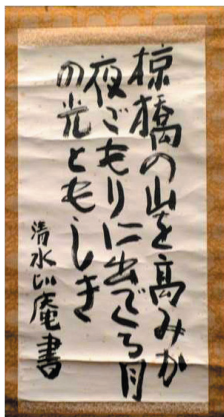 椋橋の山を高みか
夜ごもりに出でくる月
の光ともしき
清水比庵書